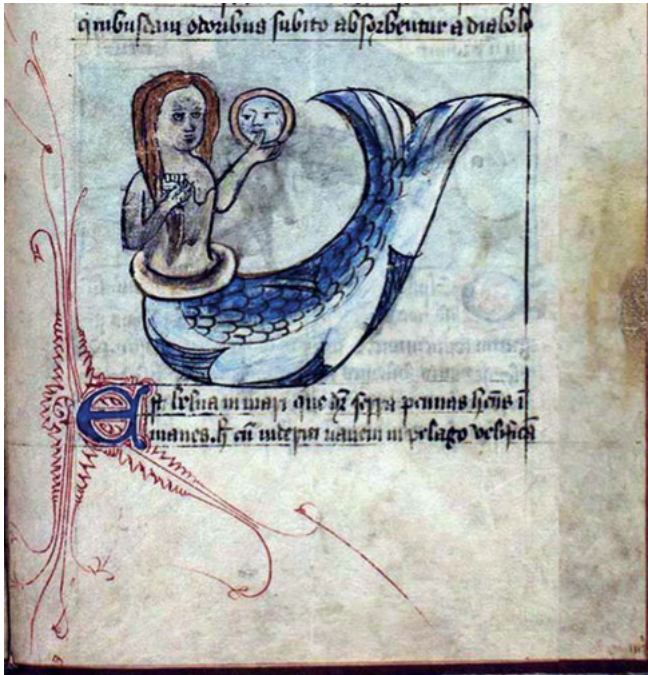 quibusdam odoribus subito absorbentur a diabolo
Est belua in mari que dr̄ serra pennas hñs ī
manes. h̄ cū uiderit nauem in pelago velificā